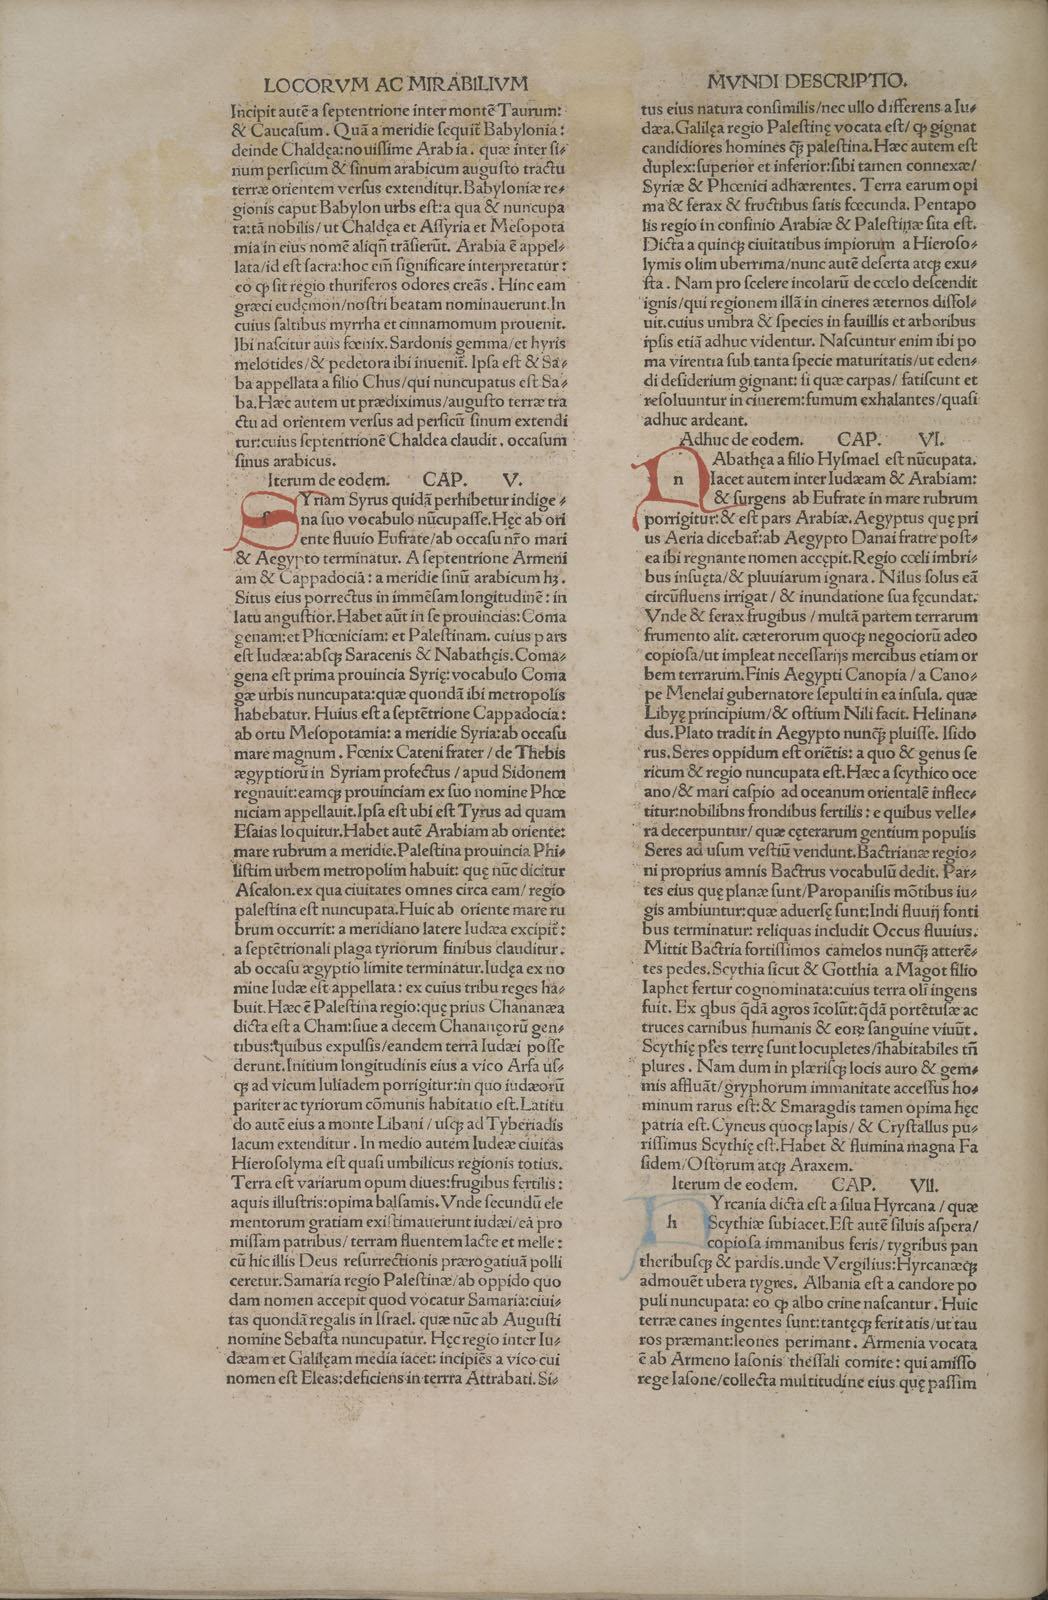 LOCORVM AC MIRABILIVM
Incipit autē a ſeptentrione inter montē Taurum:
& Caucaſum. Quā a meridie ſequit̃ Babylonia:
deinde Chaldęa: nouiſſime Arabia. quæ inter ſi⸗
num perſicum & ſinum arabicum auguſto tractu
terræ orientem verſus extenditur. Babyloniæ re⸗
gionis caput Babylon urbs eſt: a qua & nuncupa
ta: tā nobilis/ ut Chaldęa et Aſſyria et Meſopota
mia in eius nomē aliqñ trāſierūt. Arabia ē appel⸗
lata/ id eſt ſacra: hoc em̄ ſignificare interpretatur:
eo ꝙ ſit regio thuriferos odores creās. Hinc eam
græci eudęmon/ noſtri beatam nominauerunt. In
cuius ſaltibus myrrha et cinnamomum prouenit.
Ibi naſcitur auis fœnix. Sardonis gemma/ et hyris
melotides/ & pedetora ibi inuenit̃. Ipſa eſt & Sa⸗
ba appellata a filio Chus/ qui nuncupatus eſt Sa⸗
ba. Hæc autem ut prædiximus/ auguſto terræ tra
ctu ad orientem verſus ad perſicū ſinum extendi
tur: cuius ſeptentrionē Chaldea claudit. occaſum
ſinus arabicus.
Iterum de eodem. CAP. V.
SYriam Syrus quidā perhibetur indige⸗
na ſuo vocabulo nūcupaſſe. Hęc ab ori
ente fluuio Eufrate/ ab occaſu nr̃o mari
& Aegypto terminatur. A ſeptentrione Armeni
am & Cappadociā: a meridie ſinū arabicum hꝫ.
Situs eius porrectus in immēſam longitudinē: in
latu anguſtior. Habet aūt in ſe prouincias: Coma
genam: et Phœniciam: et Paleſtinam. cuius pars
eſt Iudæa: abſqꝫ Saracenis & Nabathęis. Coma⸗
gena eſt prima prouincia Syrię: vocabulo Coma
gæ urbis nuncupata: quæ quondā ibi metropolis
habebatur. Huius eſt a ſeptētrione Cappadocia:
ab ortu Meſopotamia: a meridie Syria: ab occaſu
mare magnum. Fœnix Cateni frater/ de Thebis
ægyptiorū in Syriam profectus/ apud Sidonem
regnauit: eamqꝫ prouinciam ex ſuo nomine Phœ
niciam appellauit. Ipſa eſt ubi eſt Tyrus ad quam
Eſaias loquitur. Habet autē Arabiam ab oriente:
mare rubrum a meridie. Paleſtina prouincia Phi⸗
liſtim urbem metropolim habuit: quę nūc dicitur
Aſcalon. ex qua ciuitates omnes circa eam/ regio
paleſtina eſt nuncupata. Huic ab oriente mare ru
brum occurrit: a meridiano latere Iudæa excipit̃:
a ſeptētrionali plaga tyriorum finibus clauditur.
ab occaſu ægyptio limite terminatur. Iudęa ex no
mine Iudæ eſt appellata: ex cuius tribu reges ha⸗
buit. Hæc ē Paleſtina regio: quę prius Chananæa
dicta eſt a Cham: ſiue a decem Chananęorū gen⸗
tibus: quibus expulſis/ eandem terrā Iudæi poſſe
derunt. Initium longitudinis eius a vico Arfa uſ⸗
qꝫ ad vicum Iuliadem porrigitur: in quo iudæorū
pariter ac tyriorum cōmunis habitatio eſt. Latitu
do autē eius a monte Libani/ uſqꝫ ad Tyberiadis
lacum extenditur. In medio autem Iudeæ ciuitas
Hieroſolyma eſt quaſi umbilicus regionis totius.
Terra eſt variarum opum diues: frugibus fertilis:
aquis illuſtris: opima balſamis. Vnde ſecundū ele
mentorum gratiam exiſtimauerunt iudæi/ eā pro
miſſam patribus/ terram fluentem lacte et melle:
cū hic illis Deus reſurrectionis prærogatiuā polli
ceretur. Samaria regio Paleſtinæ/ ab oppido quo
dam nomen accepit quod vocatur Samaria: ciui⸗
tas quondā regalis in Iſrael. quæ nūc ab Auguſti
nomine Sebaſta nuncupatur. Hęc regio inter Iu⸗
dæam et Galilęam media iacet: incipiēs a vico cui
nomen eſt Eleas: deficiens in terrra Attrabati. Si⸗
MVNDI DESCRIPTIO.
tus eius natura conſimilis/ nec ullo differens a Iu⸗
dæa. Galilęa regio Paleſtinę vocata eſt/ ꝙ gignat
candidiores homines qꝫ̃ paleſtina. Hæc autem eſt
duplex: ſuperior et inferior: ſibi tamen connexæ/
Syriæ & Phœnici adhærentes. Terra earum opi
ma & ferax & fructibus ſatis fœcunda. Pentapo
lis regio in confinio Arabiæ & Paleſtinæ ſita eſt.
Dicta a quinqꝫ ciuitatibus impiorum a Hieroſo⸗
lymis olim uberrima/ nunc autē deſerta atqꝫ exu⸗
ſta. Nam pro ſcelere incolarū de cœlo deſcendit
ignis/ qui regionem illā in cineres æternos diſſol⸗
uit. cuius umbra & ſpecies in fauillis et arboribus
ipſis etiā adhuc videntur. Naſcuntur enim ibi po
ma virentia ſub tanta ſpecie maturitatis/ ut eden⸗
di deſiderium gignant: ſi quæ carpas/ fatiſcunt et
reſoluuntur in cinerem: fumum exhalantes/ quaſi
adhuc ardeant.
Adhuc de eodem. CAP. VI.
n Abathęa a filio Hyſmael eſt nūcupata.
Iacet autem inter Iudæam & Arabiam:
& ſurgens ab Eufrate in mare rubrum
porrigitur: & eſt pars Arabiæ. Aegyptus quę pri
us Aeria dicebat̃: ab Aegypto Danai fratre poſt⸗
ea ibi regnante nomen accępit. Regio cœli imbri⸗
bus inſuęta/ & pluuiarum ignara. Nilus ſolus eā
circūfluens irrigat/ & inundatione ſua fęcundat.
Vnde & ferax frugibus/ multā partem terrarum
frumento alit. cæterorum quoqꝫ negociorū adeo
copioſa/ ut impleat neceſſarijs mercibus etiam or
bem terrarum. Finis Aegypti Canopia/ a Cano⸗
pe Menelai gubernatore ſepulti in ea inſula. quæ
Libyę principium/ & oſtium Nili facit. Helinan⸗
dus. Plato tradit in Aegypto nunqꝫ̃ pluiſſe. Iſido
rus. Seres oppidum eſt oriētis: a quo & genus ſe
ricum & regio nuncupata eſt. Hæc a ſcythico oce
ano/ & mari caſpio ad oceanum orientalē inflec⸗
titur: nobilibns frondibus fertilis: e quibus velle⸗
ra decerpuntur/ quæ cęterarum gentium populis
Seres ad uſum veſtiū vendunt. Bactrianæ regio⸗
ni proprius amnis Bactrus vocabulū dedit. Par⸗
tes eius quę planæ ſunt/ Paropaniſis mōtibus iu⸗
gis ambiuntur: quæ aduerſę ſunt: Indi fluuij fonti
bus terminatur: reliquas includit Occus fluuius.
Mittit Bactria fortiſſimos camelos nunqꝫ̃ atterē⸗
tes pedes. Scythia ſicut & Gotthia a Magot filio
Iaphet fertur cognominata: cuius terra oli͂ ingens
fuit. Ex qbus q̄dā agros īcolūt: q̄dā portētuſæ ac
truces carnibus humanis & eoꝝ ſanguine viuūt.
Scythię pl̃es terrę ſunt locupletes/ īhabitabiles tn̄
plures. Nam dum in plæriſqꝫ locis auro & gem⸗
mis affluāt/ gryphorum immanitate acceſſus ho⸗
minum rarus eſt: & Smaragdis tamen opima hęc
patria eſt. Cyneus quoqꝫ lapis/ & Cryſtallus pu⸗
riſſimus Scythię eſt. Habet & flumina magna Fa
ſidem/ Oſtorum atqꝫ Araxem.
Iterum de eodem. CAP. VII.
h Yrcania dicta eſt a ſilua Hyrcana/ quæ
Scythiæ ſubiacet. Eſt autē ſiluis aſpera/
copioſa immanibus feris/ tygribus pan
theribuſqꝫ & pardis. unde Vergilius: Hyrcanæqꝫ
admouēt ubera tygres. Albania eſt a candore po
puli nuncupata: eo ꝙ albo crine naſcantur. Huic
terræ canes ingentes ſunt: tantęqꝫ feritatis/ ut tau
ros præmant: leones perimant. Armenia vocata
ē ab Armeno Iaſonis theſſali comite: qui amiſſo
rege Iaſone/ collecta multitudine eius quę paſſim